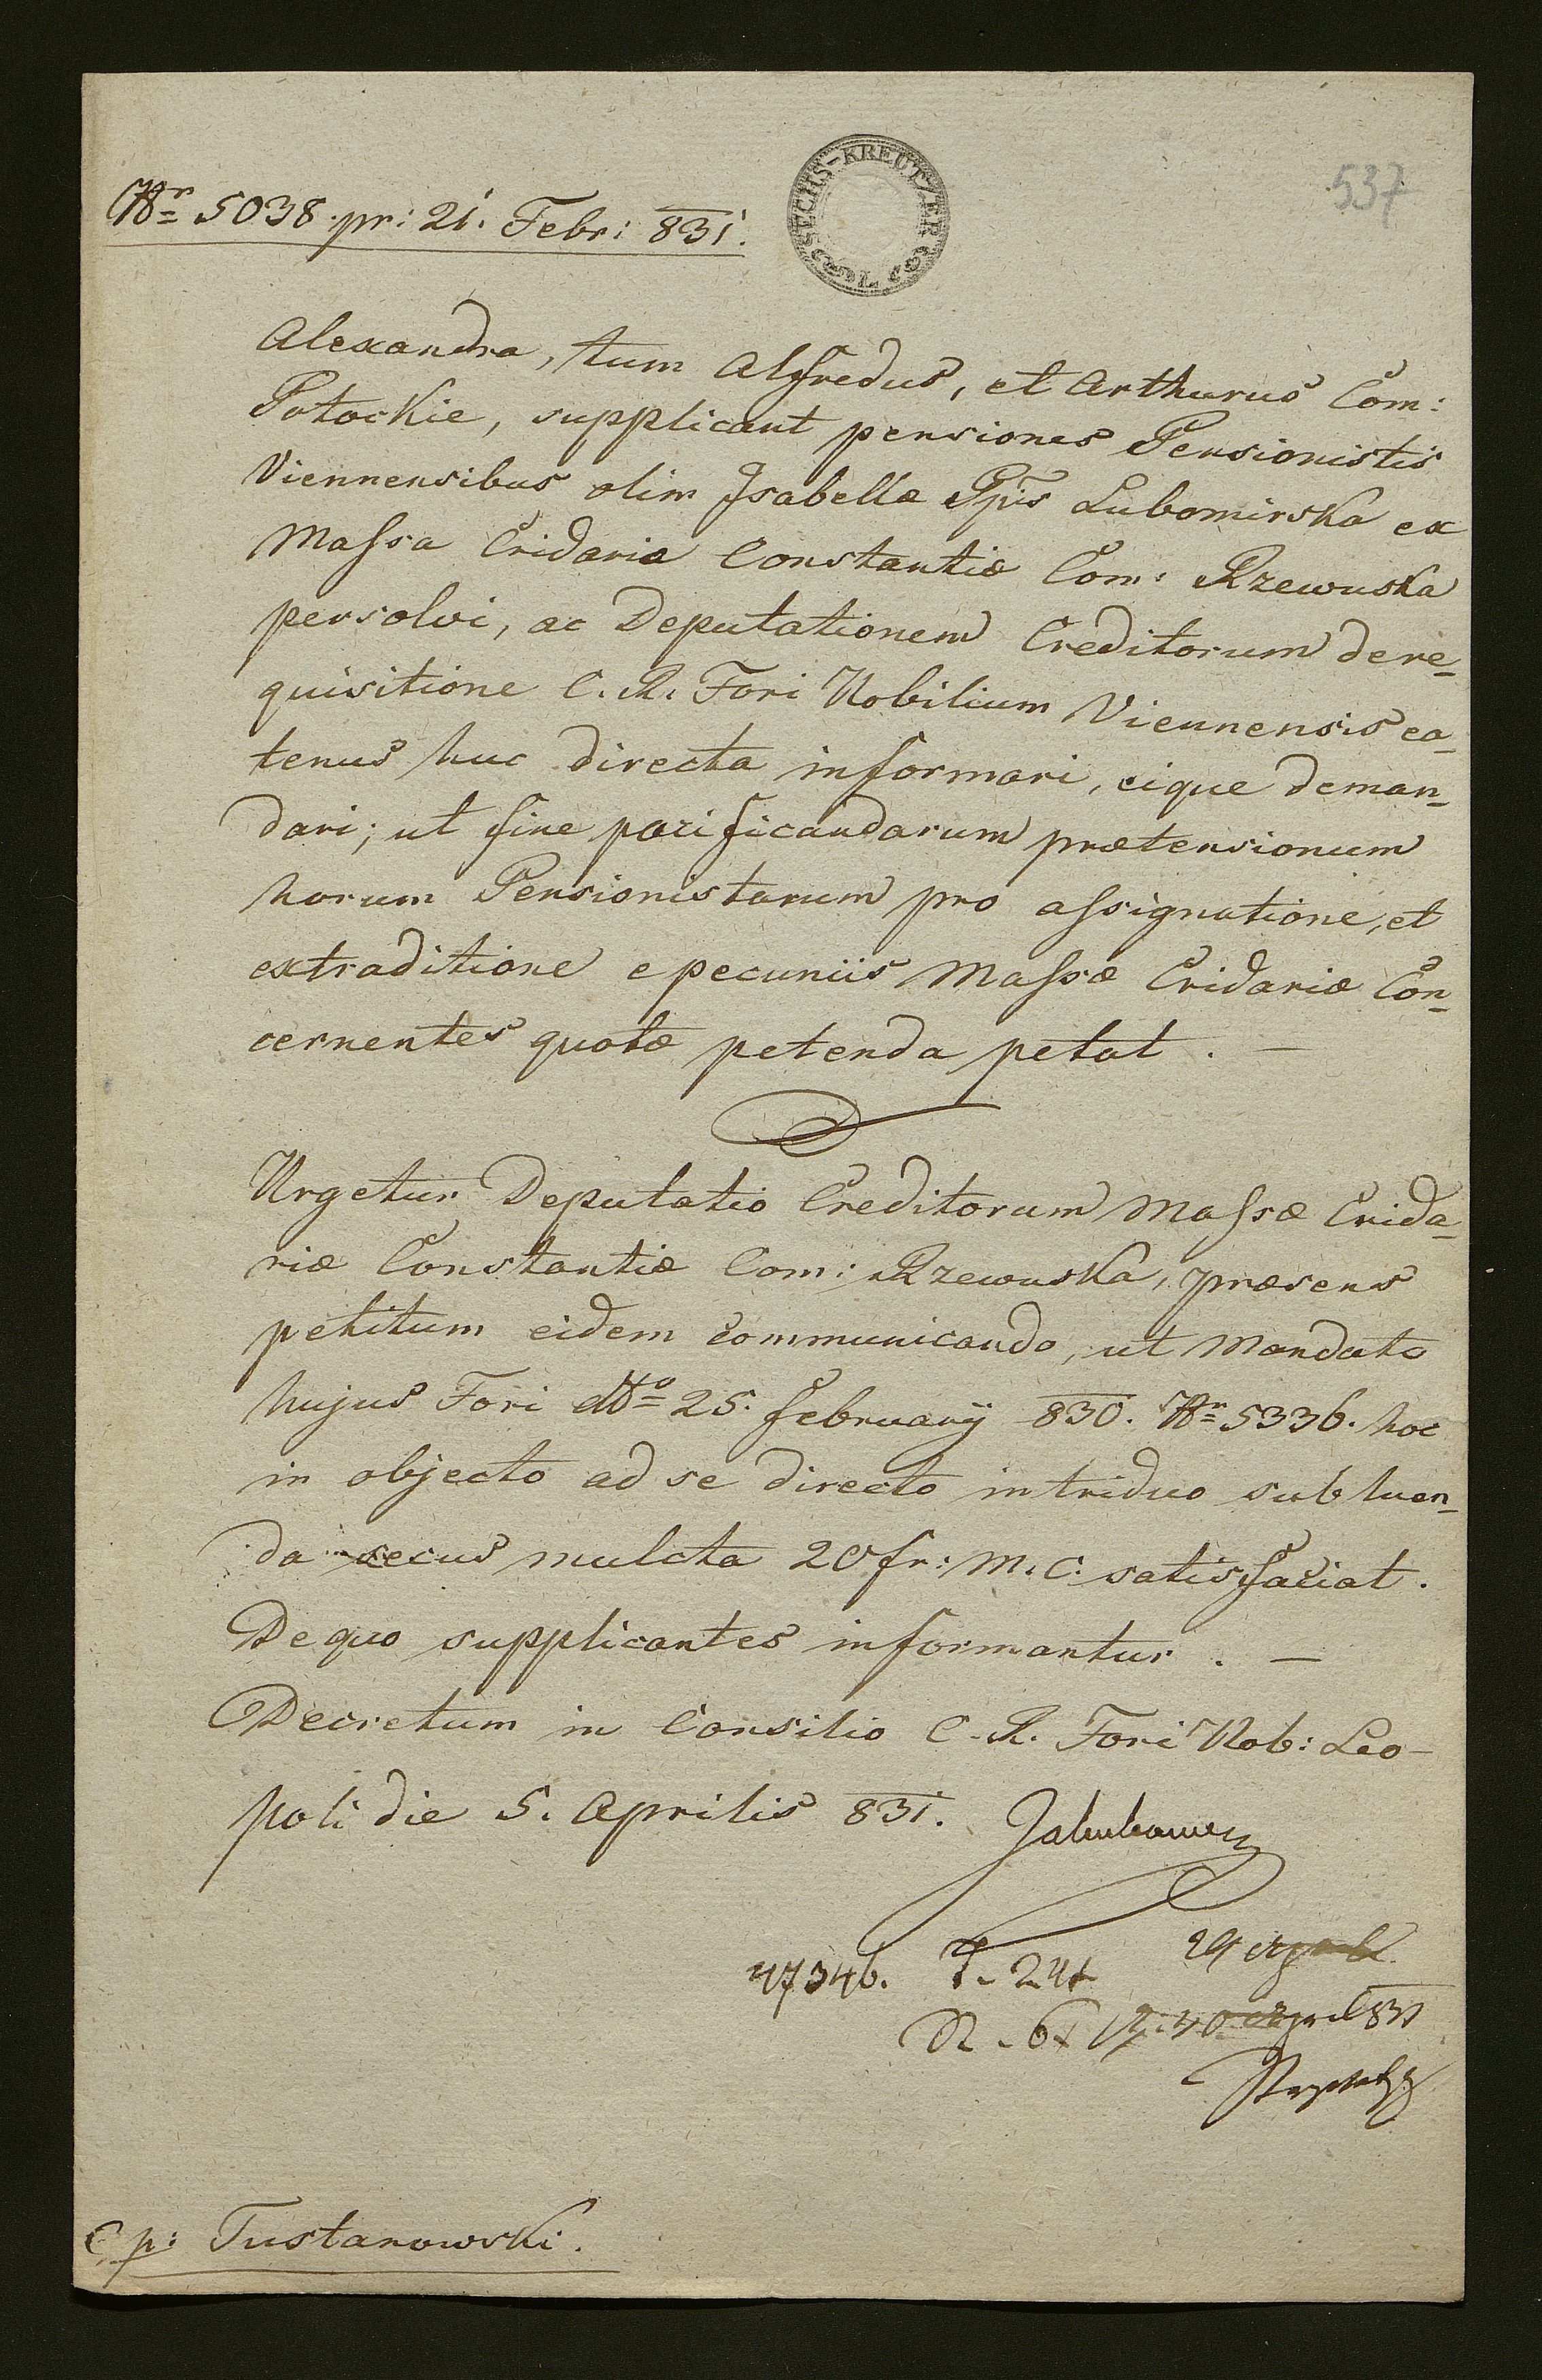 537
SECHS-KREUTZER
Nr 5038. pr: 21. Febr: 831.
Alexandra, tum Alfredus, et Arthurus Com:
Potockie, supplicant pensiones Pensionistis
Viennensibus olim Isabellæ Ppis Lubomirska ex
Massa Cridaria Constantiæ Com: Rzewuska
persolvi, ac Deputationem Creditorum de re-
quisitione C. R. Fori Nobilium Viennensis ea-
tenus huc directa informari, eique deman-
dari; ut fine pacificandarum prætensionum
horum Pensionistarum pro assignatione, et
extraditione e pecuniis Massæ Cridariæ Con-
cernentes quotæ petenda petat. —
Urgetur Deputatio Creditorum Massæ Crida-
riæ Constantiæ Com: Rzewuska, præsens
petitum eidem communicando, ut Mandato
hujus Fori ddto 25. february 830. Nr 5336. hoc
in objecto ad se directo in triduo sub luen-
da secus mulcta 20 fr: M. C. satisfaciat.
De quo supplicantes informantur. —
Decretum in Consilio C. R. Fori Nob: Leo-
poli die 5. Aprilis 831.
47346. T. 24x
R. 6x 30 April 831
Cp: Tustanowski.